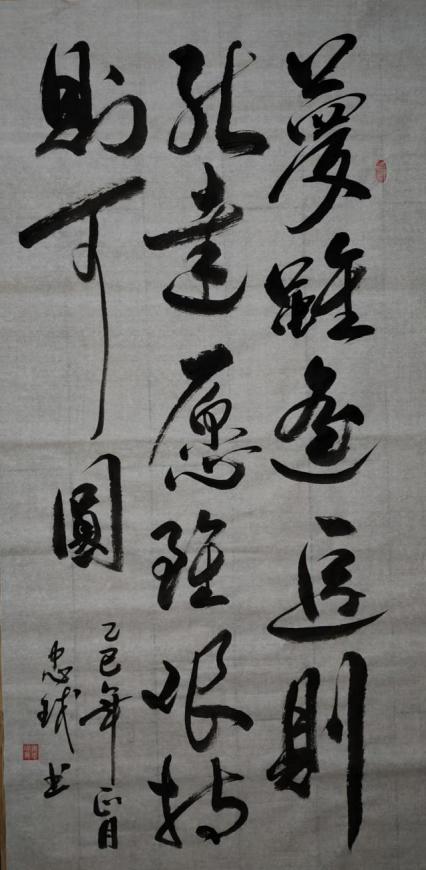 夢雖遙追則
能達愿雖艰持
則可圓
乙巳年正月
忠 书